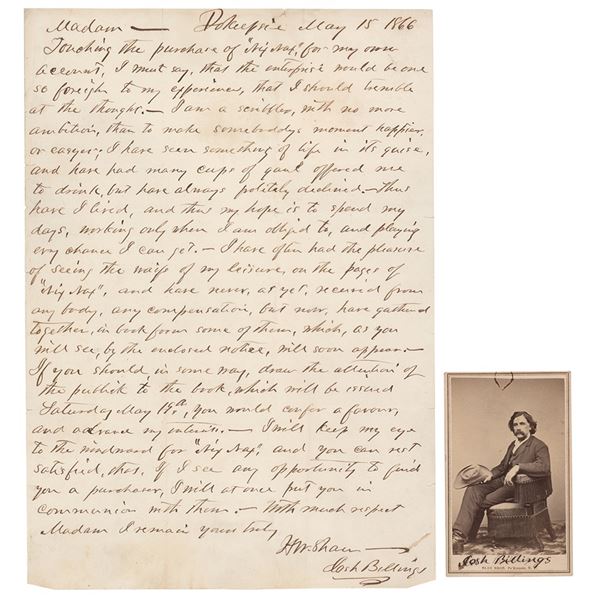 Madam — Pokeepsie May 15 1866
Touching the purchase of "Nix Nax", for my own
account, I must say, that the enterprise would be one
so foreign to my experience, that I should tremble
at the thought. — I am a scribbler, with no more
ambition, than to make somebodys moment happier,
or easyer; I have seen something of life in its guise,
and have had many cups of gaul offered me
to drink, but have always politely declined. — Thus
have I lived, and thus my hope is to spend my
days, working only when I am obliged to, and playing
evry chance I can get. — I have often had the pleasure
of seeing the waifs of my leisure, on the pages of
"Nix Nax", and have never, as yet, received from
any body, any compensation, but now, have gathered
together, in book form some of them, which, as you
will see, by the enclosed notice, will soon appear. —
If you should in some way, draw the attention of
the publick to the book, which will be issued
Saturday May, you would confer a favour,
and advance my interests. — I will keep my eye
to the windward for "Nix Nax", and you can rest
satisfied, that, if I see any opportunity to find
you a purchaser, I will at once put you in
communion with them. — With much respect
Madam I remain yours truly
H W Shaw —
Josh Billings
Josh Billings